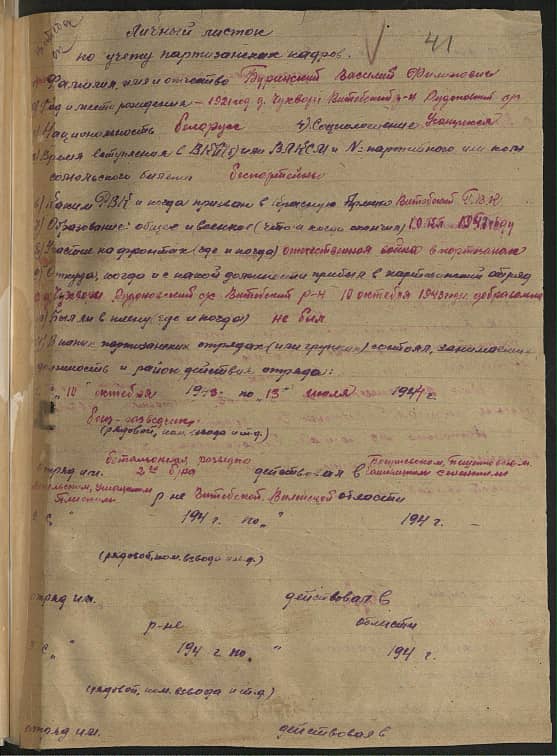 41
Личный листок
по учету партизанских кадров.
Фамилия, имя и отчество Буринский Василий Филиппович
Год и место рождения – 1921 год д. Чухвори Витебский р-н Рудоковский с/с
Национальность белорус 4) Соц. положение Учащийся
Время вступления в ВКП(б) или ВЛКСМ и № партийного или ком
сомольского билета беспартейный
6) Каким РВК и когда призван в Красную Армию Витебский Г.В.К
7) Образование: общее и военное (что и когда окончил)
8) Участие на фронтах (где и когда) отечественная война в партизанах
9) Откуда, когда и с какой должности прибыл в партизанский отряд
с/с Витебский р-н 10 октября 1943 года
Был ли в плену, где и когда) не был
В каких партизанских отрядах (или группах) состоял, занимаемая
должность и район действия отряда:
"10" октября 1943 по "13" июля 1944 г.
боец-разведчик
(рядовой, ком. взвода и т.д.)
отряд им. 2ой б/ра действовал в
р-не Витебской Вилейской области
с " 194 г. по " 194 г.
(рядовой, ком. взвода и т.д.)
отряд им. действовал в
р-не области
с " 194 г по " 194 г.
(рядовой, ком. взвода и т.д.)
отряд им. действовал в